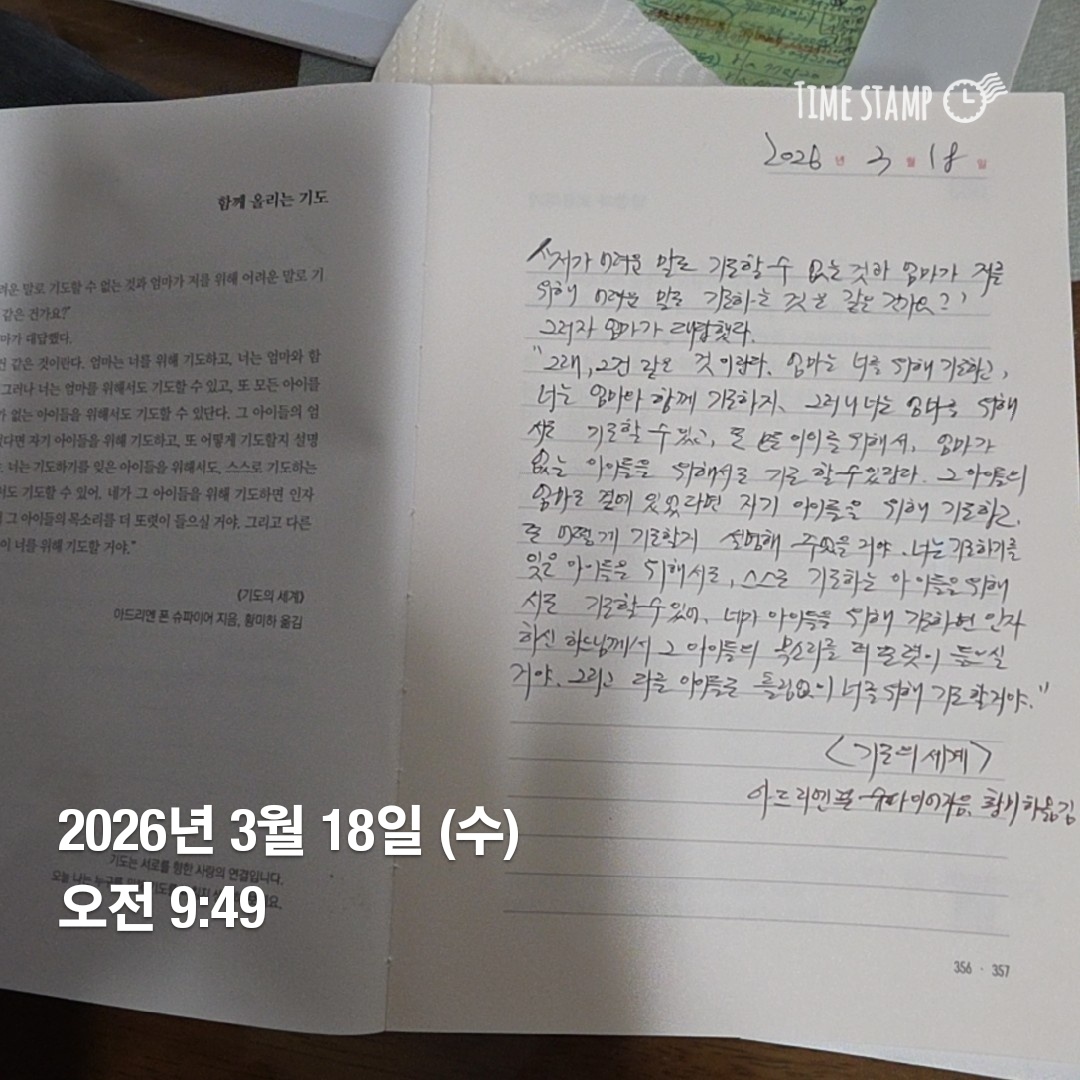 TIME STAMP
2026 년 3 월 18 일
함께 올리는 기도
려운 말로 기도할 수 없는 것과 엄마가 저를 위해 어려운 말로 기
같은 건가요?"
마가 대답했다.
건 같은 것이란다. 엄마는 너를 위해 기도하고, 너는 엄마와 함
그러나 너는 엄마를 위해서도 기도할 수 있고, 또 모든 아이들
가 없는 아이들을 위해서도 기도할 수 있단다. 그 아이들의 엄
있다면 자기 아이들을 위해 기도하고, 또 어떻게 기도할지 설명
너는 기도하기를 잊은 아이들을 위해서도, 스스로 기도하는
서도 기도할 수 있어. 네가 그 아이들을 위해 기도하면 인자
그 아이들의 목소리를 더 또렷이 들으실 거야. 그리고 다른
이 너를 위해 기도할 거야."
《기도의 세계》
아드리엔 폰 슈파이어 지음, 황미하 옮김
기도는 서로를 향한 사랑의 연결입니다.
오늘 나는
"저가 어려운 말로 기도할 수 없는 것과 엄마가 저를
위해 어려운 말로 기도하는 것은 같은 건가요?"
그러자 엄마가 대답했다.
"그래, 그건 같은 것이란다. 엄마는 너를 위해 기도하고,
너는 엄마와 함께 기도하지. 그러나 너는 엄마를 위해
서도 기도할 수 있고, 또 모든 아이를 위해서, 엄마가
없는 아이들을 위해서도 기도 할 수 있단다. 그 아이들의
엄마도 곁에 있었다면 자기 아이들을 위해 기도하고,
또 어떻게 기도할지 설명해 주었을 거야. 너는 기도하기를
잊은 아이들을 위해서도, 스스로 기도하는 아이들을 위해
서도 기도할 수 있어. 네가 아이들을 위해 기도하면 인자
하신 하느님께서 그 아이들의 목소리를 더 또렷이 들으실
거야. 그리고 다른 아이들도 틀림없이 너를 위해 기도할거야."
<기도의 세계>
아드리엔 폰 슈파이어지음, 황미하옮김
356 · 357
2026년 3월 18일 (수)
오전 9:49